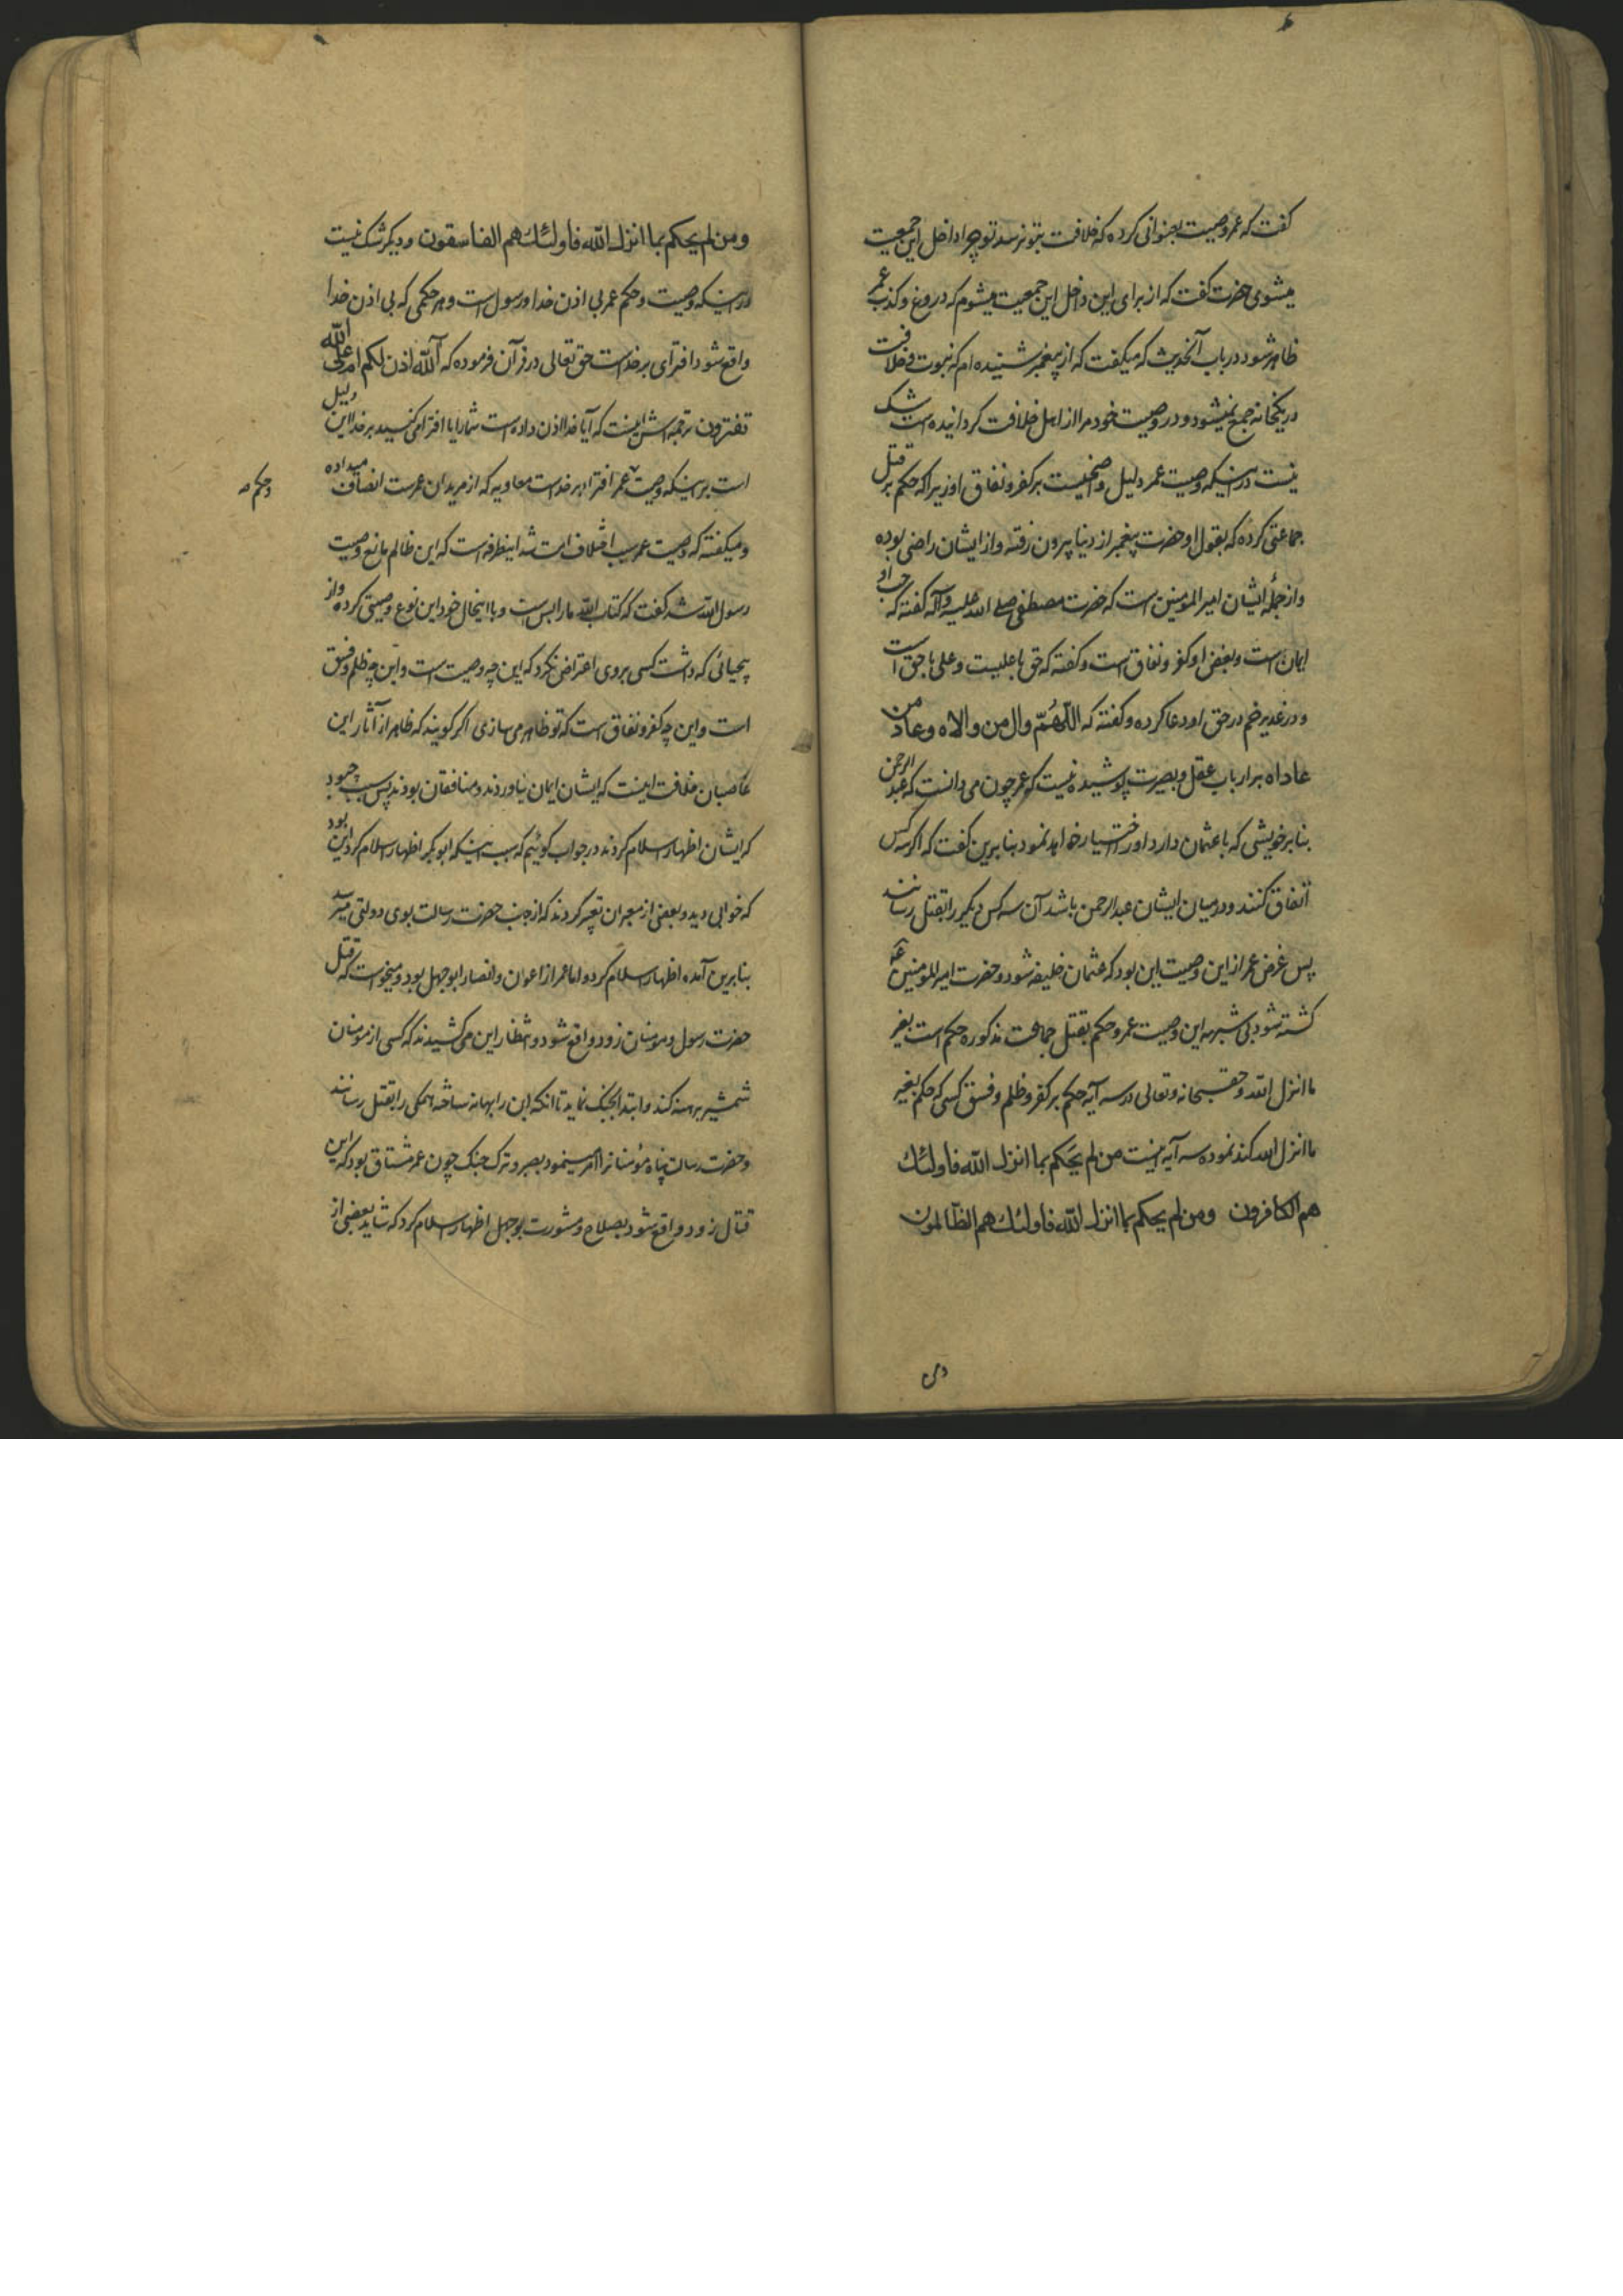 کفت که عمر وصیت بعنوانی کرده که خلافت بتو نرسد تو چرا داخل این جمعیت
میشوی حضرت کفت که از برای این داخل این جمعیت میشوم که دروغ و کذب عمر
ظاهر شود در باب آنحدیث که میکفت که از پیغمبر شنیده ام که نبوت و خلافت
در یکخانه جمع نمیشود و در وصیت خود مرا از اهل خلافت کردانیده است شک
نیست در اینکه وصیت عمر دلیل واضحیست بر کفر و نفاق او زیرا که حکم بر قتل
جماعتی کرده که بقول او حضرت پیغمبر از دنیا بیرون رفته و از ایشان راضی بوده
و از جمله ایشان امیر المومنین است که حضرت مصطفی صلی الله علیه وآله کفته که حب او
ایمان است و بغض او کفر و نفاق است و کفته که حق با علیست و علی با حق است
و در غدیر خم در حق او دعا کرده و کفته که اللهم وال من والاه وعاد من
عاداه بر ارباب عقل و بصیرت پوشیده نیست که عمر چون می دانست که عبد الرحمن
بنابر خویشی که با عثمان دارد او را اختیار خواهد نمود بنابرین کفت که اکر سه کس
اتفاق کنند و در میان ایشان عبدالرحمن باشد آن سه کس دیکر را بقتل رسانند
پس غرض عمر از این وصیت این بود که عثمان خلیفه شود و حضرت امیر المومنین ع
کشته شود بی شبهه این وصیت عمر و حکم بقتل جماعت مذکوره حکم است بغیر
ما انزل الله و حق سبحانه و تعالی در سه آیه حکم بر کفر و ظلم و فسق کسی که حکم بغیر
ما انزل الله کند نموده سه آیه اینست من لم یحکم بما انزل الله فاولئك
هم الکافرون ومن لم یحکم بما انزل الله فاولئك هم الظالمون
ومن
ومن لم یحکم بما انزل الله فاولئك هم الفاسقون و دیکر شک نیست
در اینکه وصیت و حکم عمر بی اذن خدا و رسول است و هر حکمی که بی اذن خدا
واقع شود افترای بر خداست حق تعالی در قرآن فرموده که آلله اذن لکم ام علی الله
تفترون ترجمه اش اینست که آیا خدا اذن داده است شما را یا افترا می کنید بر خدا این دلیل
است بر اینکه وصیت عمر افترا بر خداست معاویه که از مریدان عمر است انصاف میداده
و حکم صه
و میکفته که وصیت عمر سبب اختلاف امت شد اینطرفه است که این ظالم مانع وصیت
رسول الله شد کفت که کتاب الله ما را بس است و با اینحال خود این نوع وصیتی کرده و از
بیحیائی که داشت کسی بروی اعتراض نکرد که این چه وصیت است و این چه ظلم و فسق
است و این چه کفر و نفاق است که تو ظاهر می سازی اکر کویند که ظاهر از آثار این
غاصبان خلافت اینست که ایشان ایمان نیاوردند و منافقان بودند پس سبب چه بود
که ایشان اظهار اسلام کردند در جواب کوئیم که سبب اینکه ابوبکر اظهار اسلام کرد این بود
که خوابی دید و بعضی از معبران تعبیر کردند که از جانب حضرت رسالت بوی دولتی میرسد
بنابرین آمده اظهار اسلام کرد و اما عمر از اعوان و انصار ابوجهل بود و میخواست که قتل
حضرت رسول و مومنان زود واقع شود و انتظار این می کشیدند که کسی از مومنان
شمشیر برهنه کند و ابتدا بجنک نماید تا آنکه این را بهانه ساخته همکی را بقتل رسانند
و حضرت رسالت پناه مؤمنانرا امر مینمود بصبر و ترک جنک چون عمر مشتاق بود که این
قتال زود واقع شود بصلاح و مشورت بوجهل اظهار اسلام کرد که شاید بعضی از